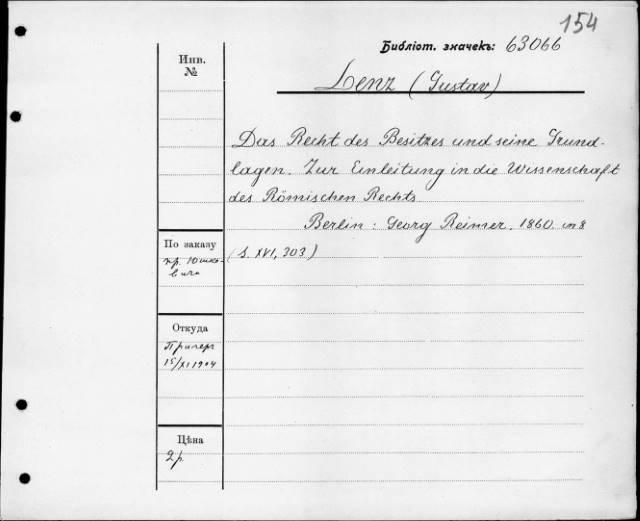 154
Библіот. значекъ: 63066
Инв.
№
Lenz (Gustav)
Das Recht des Besitzes und seine Grund-
lagen. Zur Einleitung in die Wissenschaft
des Römischen Rechts
Berlin: Georg Reimer. 1860. in 8
(S. XVI, 303)
По заказу
пр. Юшке-
вича
Откуда
15/XI 1904
Цѣна
2 р